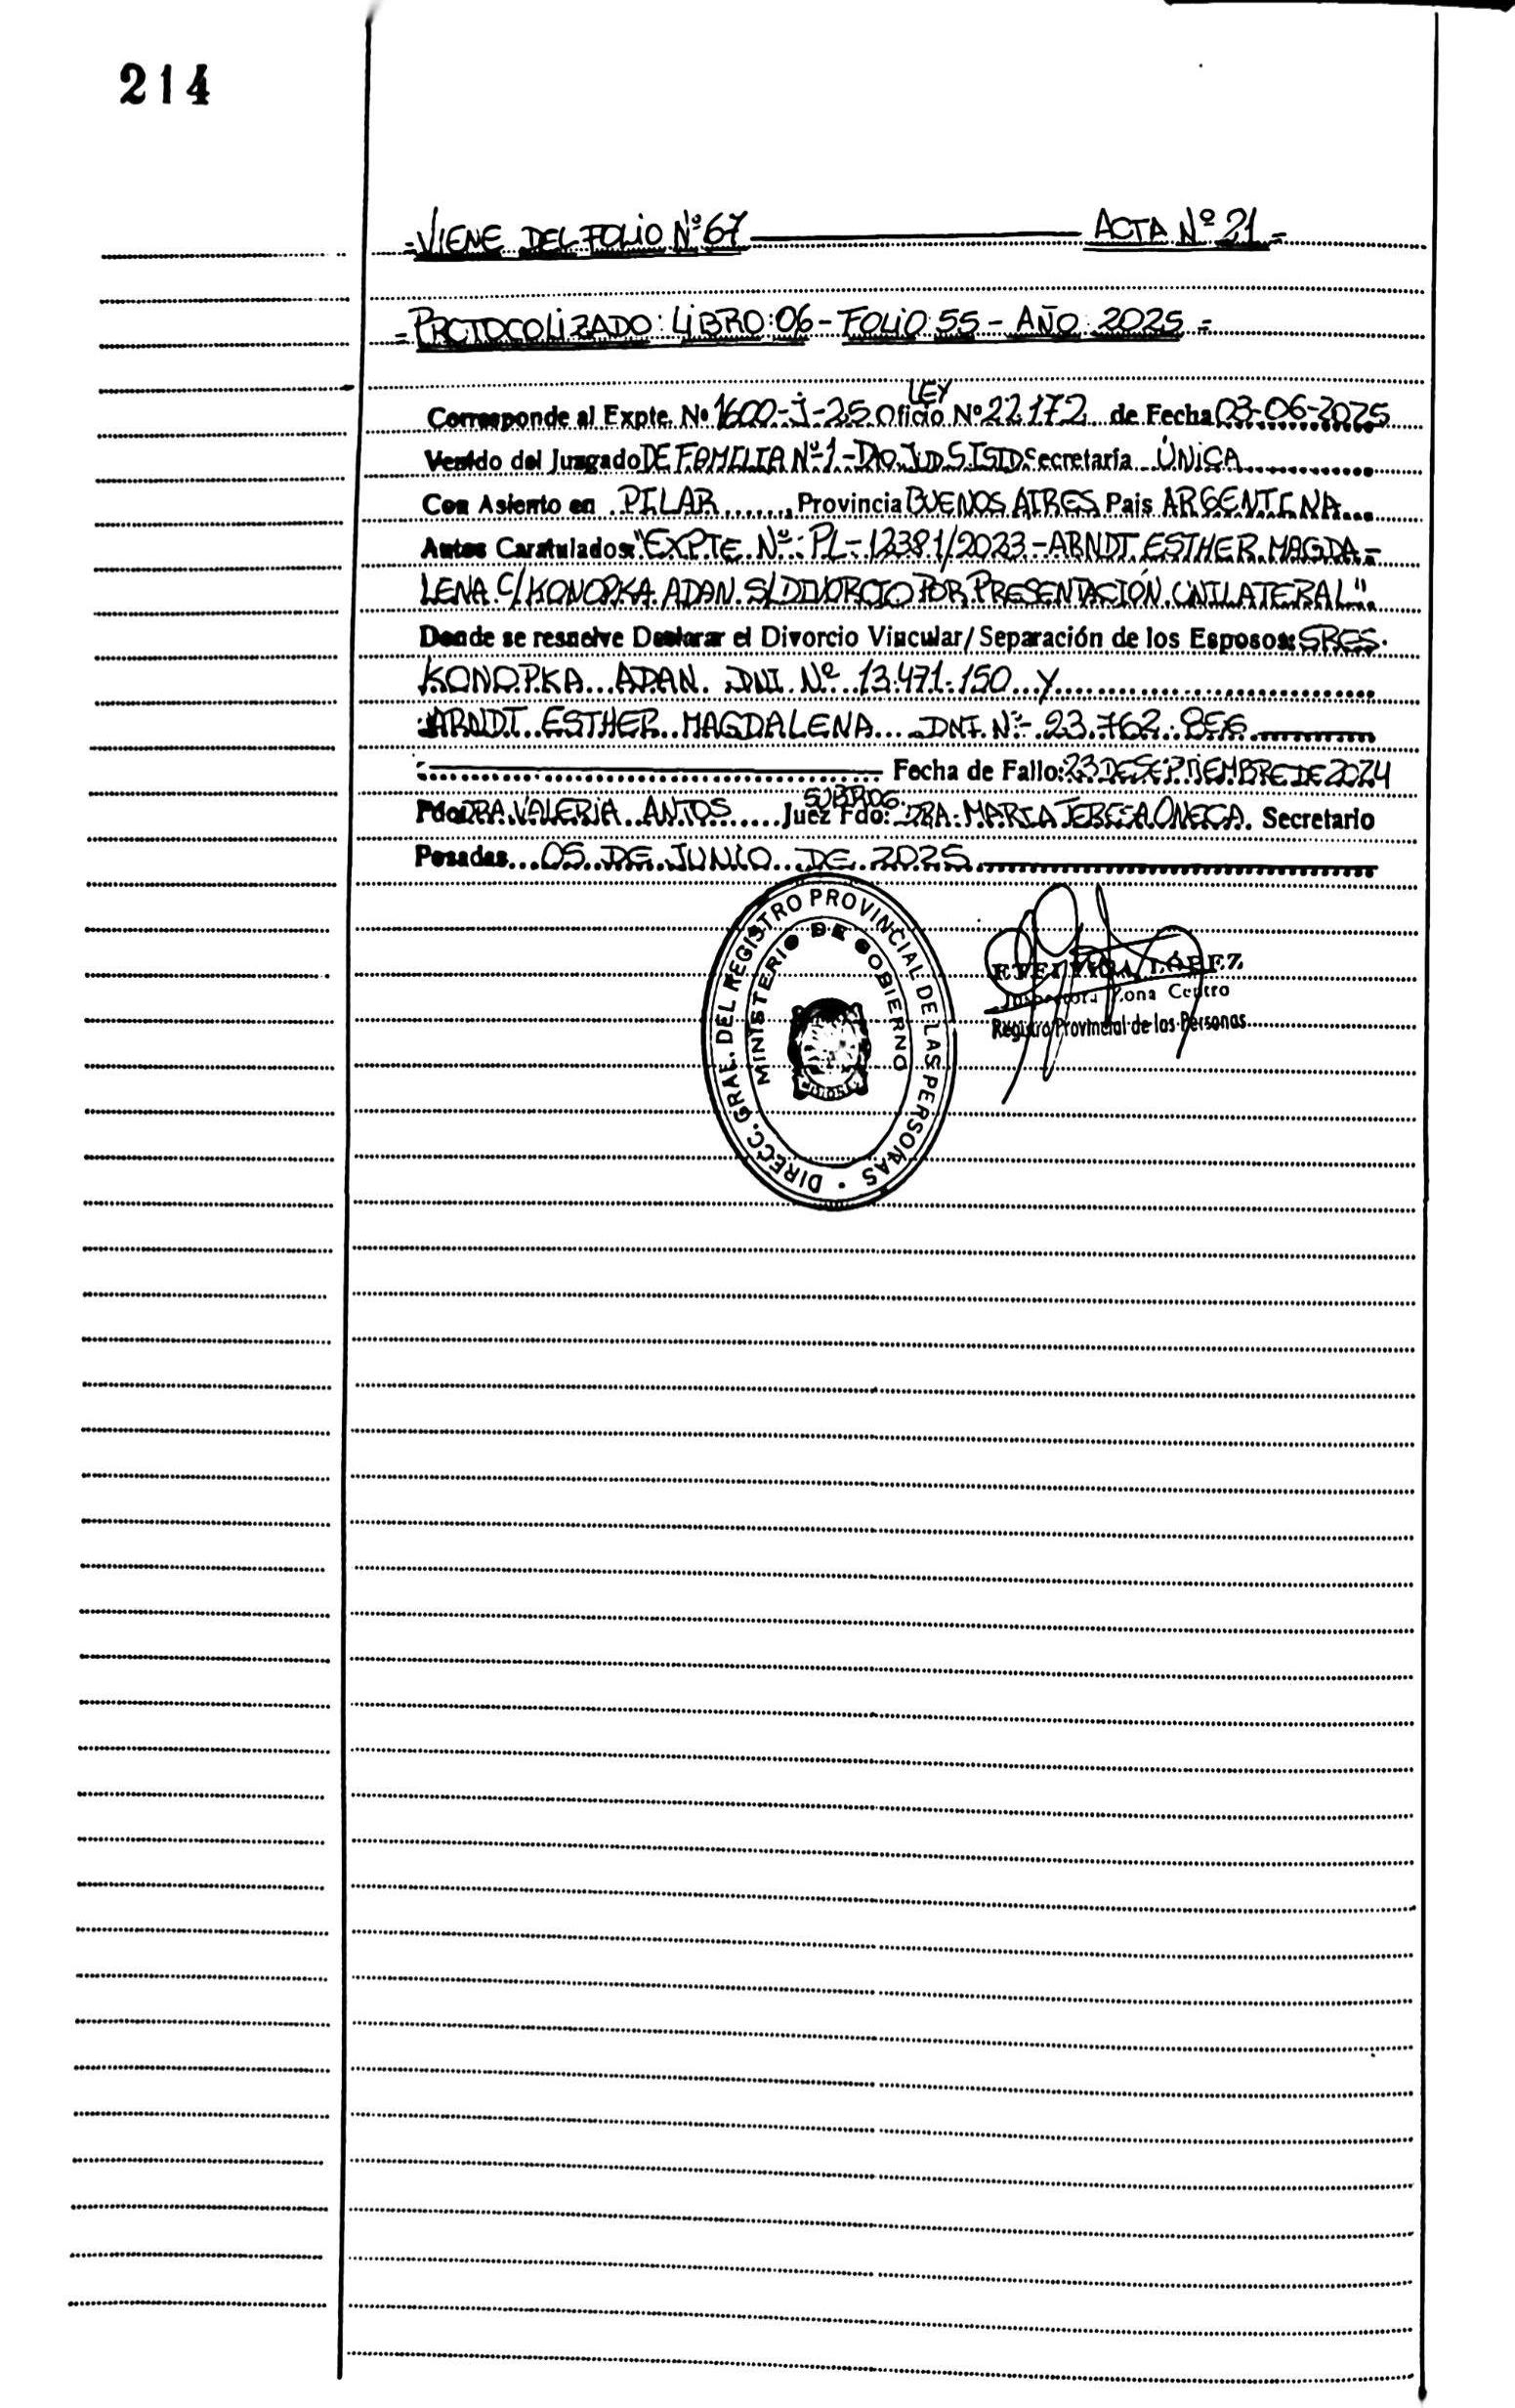 214
-VIENE DEL FOLIO Nº 67 ACTA Nº 21-
-PROTOCOLIZADO: LIBRO: 06 - FOLIO 55 - AÑO: 2025-
LEY
Corresponde al Expte. Nº 1600-J-25 Oficio Nº 22.172 de Fecha 03-06-2025
Venido del Juzgado DE FAMILIA Nº 1-DTO. JUD S. ISID Secretaría ÚNICA
Con Asiento en PILAR, Provincia BUENOS AIRES País ARGENTINA
Autos Caratulados: "EXPTE. Nº: PL-12381/2023-ARNDT ESTHER MAGDA-
LENA C/KONOPKA ADAN S/DIVORCIO POR PRESENTACIÓN UNILATERAL".
Donde se resuelve Declarar el Divorcio Vincular/Separación de los Esposos: SRES.
KONOPKA ADAN. DNI. Nº 13.471.150 Y
ARNDT ESTHER MAGDALENA DNI. Nº 23.762.
Fecha de Fallo: 23 DE SEPTIEMBRE DE 2024
SUBROG.
Fdo: DRA. VALERIA ANTOS Juez Fdo: DRA. MARIA TERESA ONEGA. Secretario
Posadas 05 DE JUNIO DE 2025
DIRECC. GRAL. DEL REGISTRO PROVINCIAL DE LAS PERSONAS
MINISTERIO DE GOBIERNO
LÓPEZ
Inspectora Zona Centro
Registro Provincial de las Personas